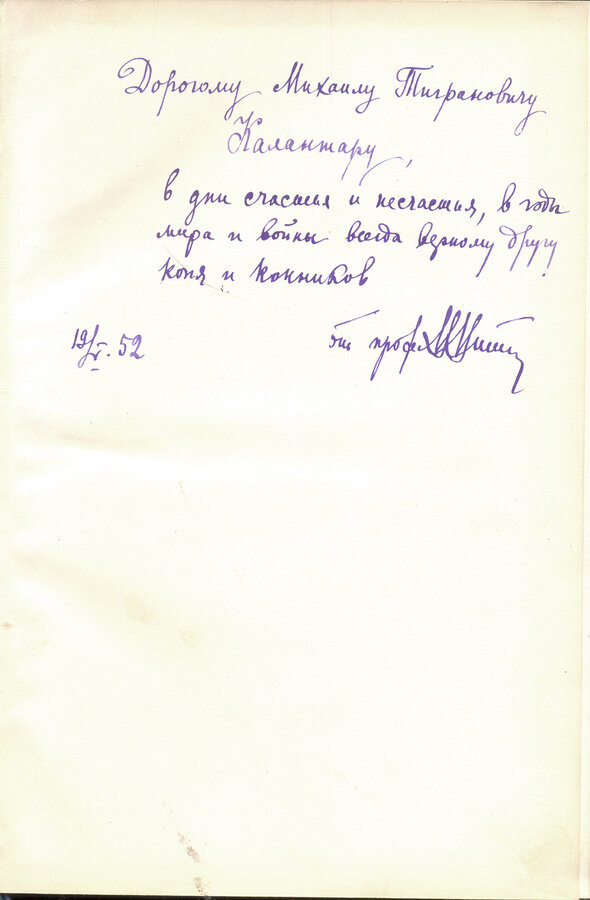 Дорогому Михаилу Тиграновичу
Калантару,
в дни счастия и несчастия, в годы
мира и войны всегда верному другу
коня и конников
19/V. 52 от проф.